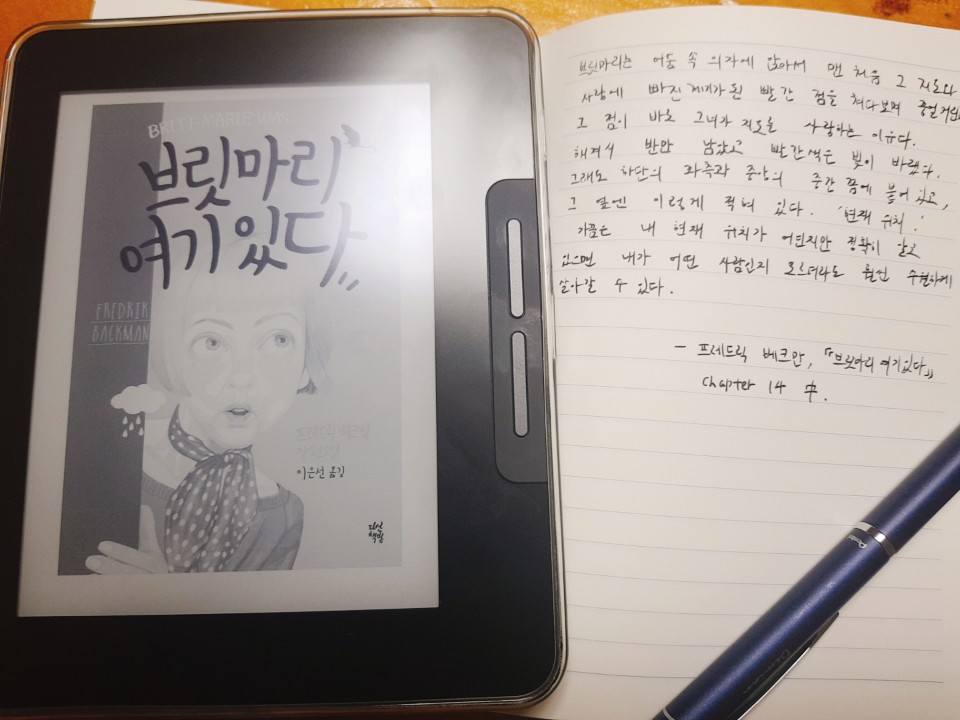 BRITT-MARIE WAS
브릿마리
여기 있다
FREDRIK
BACKMAN
프레드릭 배크만
장편소설
이은선 옮김
다산
책방
브릿마리는 어둠 속 의자에 앉아서 맨 처음 그 지도와
사랑에 빠진 계기가 된 빨간 점을 쳐다보며
그 점이 바로 그녀가 지도를 사랑하는 이유다.
해져서 반만 남았고 빨간색은 빛이 바랬다.
그래도 하단의 좌측과 중앙의 중간 쯤에 붙어 있고,
그 옆엔 이렇게 적혀 있다. '현재 위치'.
가끔은 내 현재 위치가 어딘지만 정확히 알고
있으면 내가 어떤 사람인지 모르더라도 훨씬 수월하게
살아갈 수 있다.
― 프레드릭 베크만, 『브릿마리 여기있다』
Chapter 14 中.
Pentel